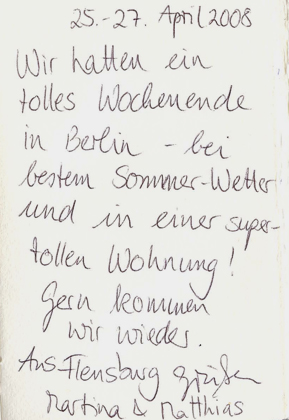 25.-27. April 2008
Wir hatten ein
tolles Wochenende
in Berlin - bei
bestem Sommer-Wetter
und in einer super-
tollen Wohnung!
Gern kommen
wir wieder.
Aus Flensburg grüßen
Martina & Matthias